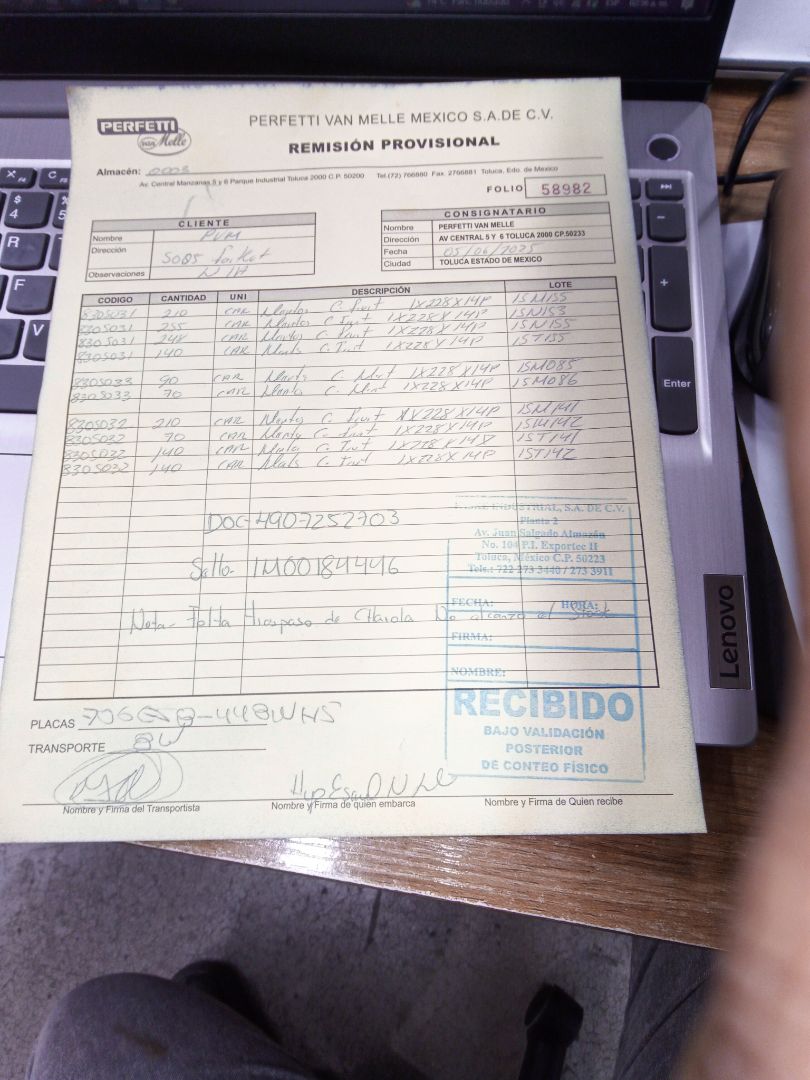 PERFETTI
van Melle
PERFETTI VAN MELLE MEXICO S.A.DE C.V.
REMISIÓN PROVISIONAL
Almacén: 0003
Av. Central Manzanas 5 y 6 Parque Industrial Toluca 2000 C.P. 50200 Tel.(72) 766880 Fax. 2766881 Toluca, Edo. de Mexico
FOLIO 58982
CLIENTE
Nombre PVM
Dirección SOBS
Observaciones N/A
CONSIGNATARIO
Nombre PERFETTI VAN MELLE
Dirección AV CENTRAL 5 Y 6 TOLUCA 2000 CP.50233
Fecha 05/06/2025
Ciudad TOLUCA ESTADO DE MEXICO
CODIGO CANTIDAD UNI DESCRIPCIÓN LOTE
8305031 210 CAR Mentos C. Fruit 1X228X14P 15M155
8305031 255 CAR Mentos C. Fruit 1X228X14P 15N153
8305031 248 CAR Mentos C. Fruit 1X228X14P 15N155
8305031 140 CAR Ments C. Fruit 1X228X14P 15T155
8305033 90 CAR Ments C. Mint 1X228X14P 15M085
8305033 70 CAR Ments C. Mint 1X228X14P 15M086
8305032 210 CAR Mentos C. Fruit 1X228X14P 15M141
8305032 70 CAR C. Fruit 1X228X14P 15M142
8305032 140 CAR C. Fruit 1X228X14P 15T141
8305032 140 CAR C. Fruit 1X228X14P 15T142
DOC-4907252703
Sello- 1M00184446
Nota- Falta traspaso de Charola No alcanzo el Stock
INDUSTRIAL, S.A. DE C.V.
Planta 2
Av. Juan Salgado Almazán
No. 104 P.I. Exportec II
Toluca, México C.P. 50223
Tels.: 722 273 3440 / 273 3911
FECHA: HORA:
FIRMA:
NOMBRE:
RECIBIDO
BAJO VALIDACIÓN
POSTERIOR
DE CONTEO FÍSICO
PLACAS
TRANSPORTE BW
Nombre y Firma del Transportista
Nombre y Firma de quien embarca
Nombre y Firma de Quien recibe
Lenovo
Enter